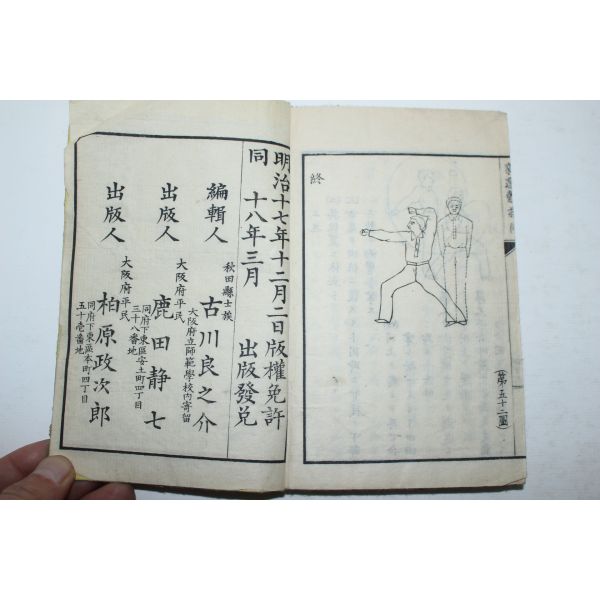 終
(第五十二圖)
明治十七年十二月二日版權免許
同 十八年三月 出版發兌
秋田縣士族
大阪府立師範學校内寄留
編輯人 古川良之介
大阪府平民
同府下東區安土町四丁目
三十八番地
出版人 鹿田静七
大阪府平民
同府下東區本町四丁目
五十壱番地
出版人 柏原政次郎